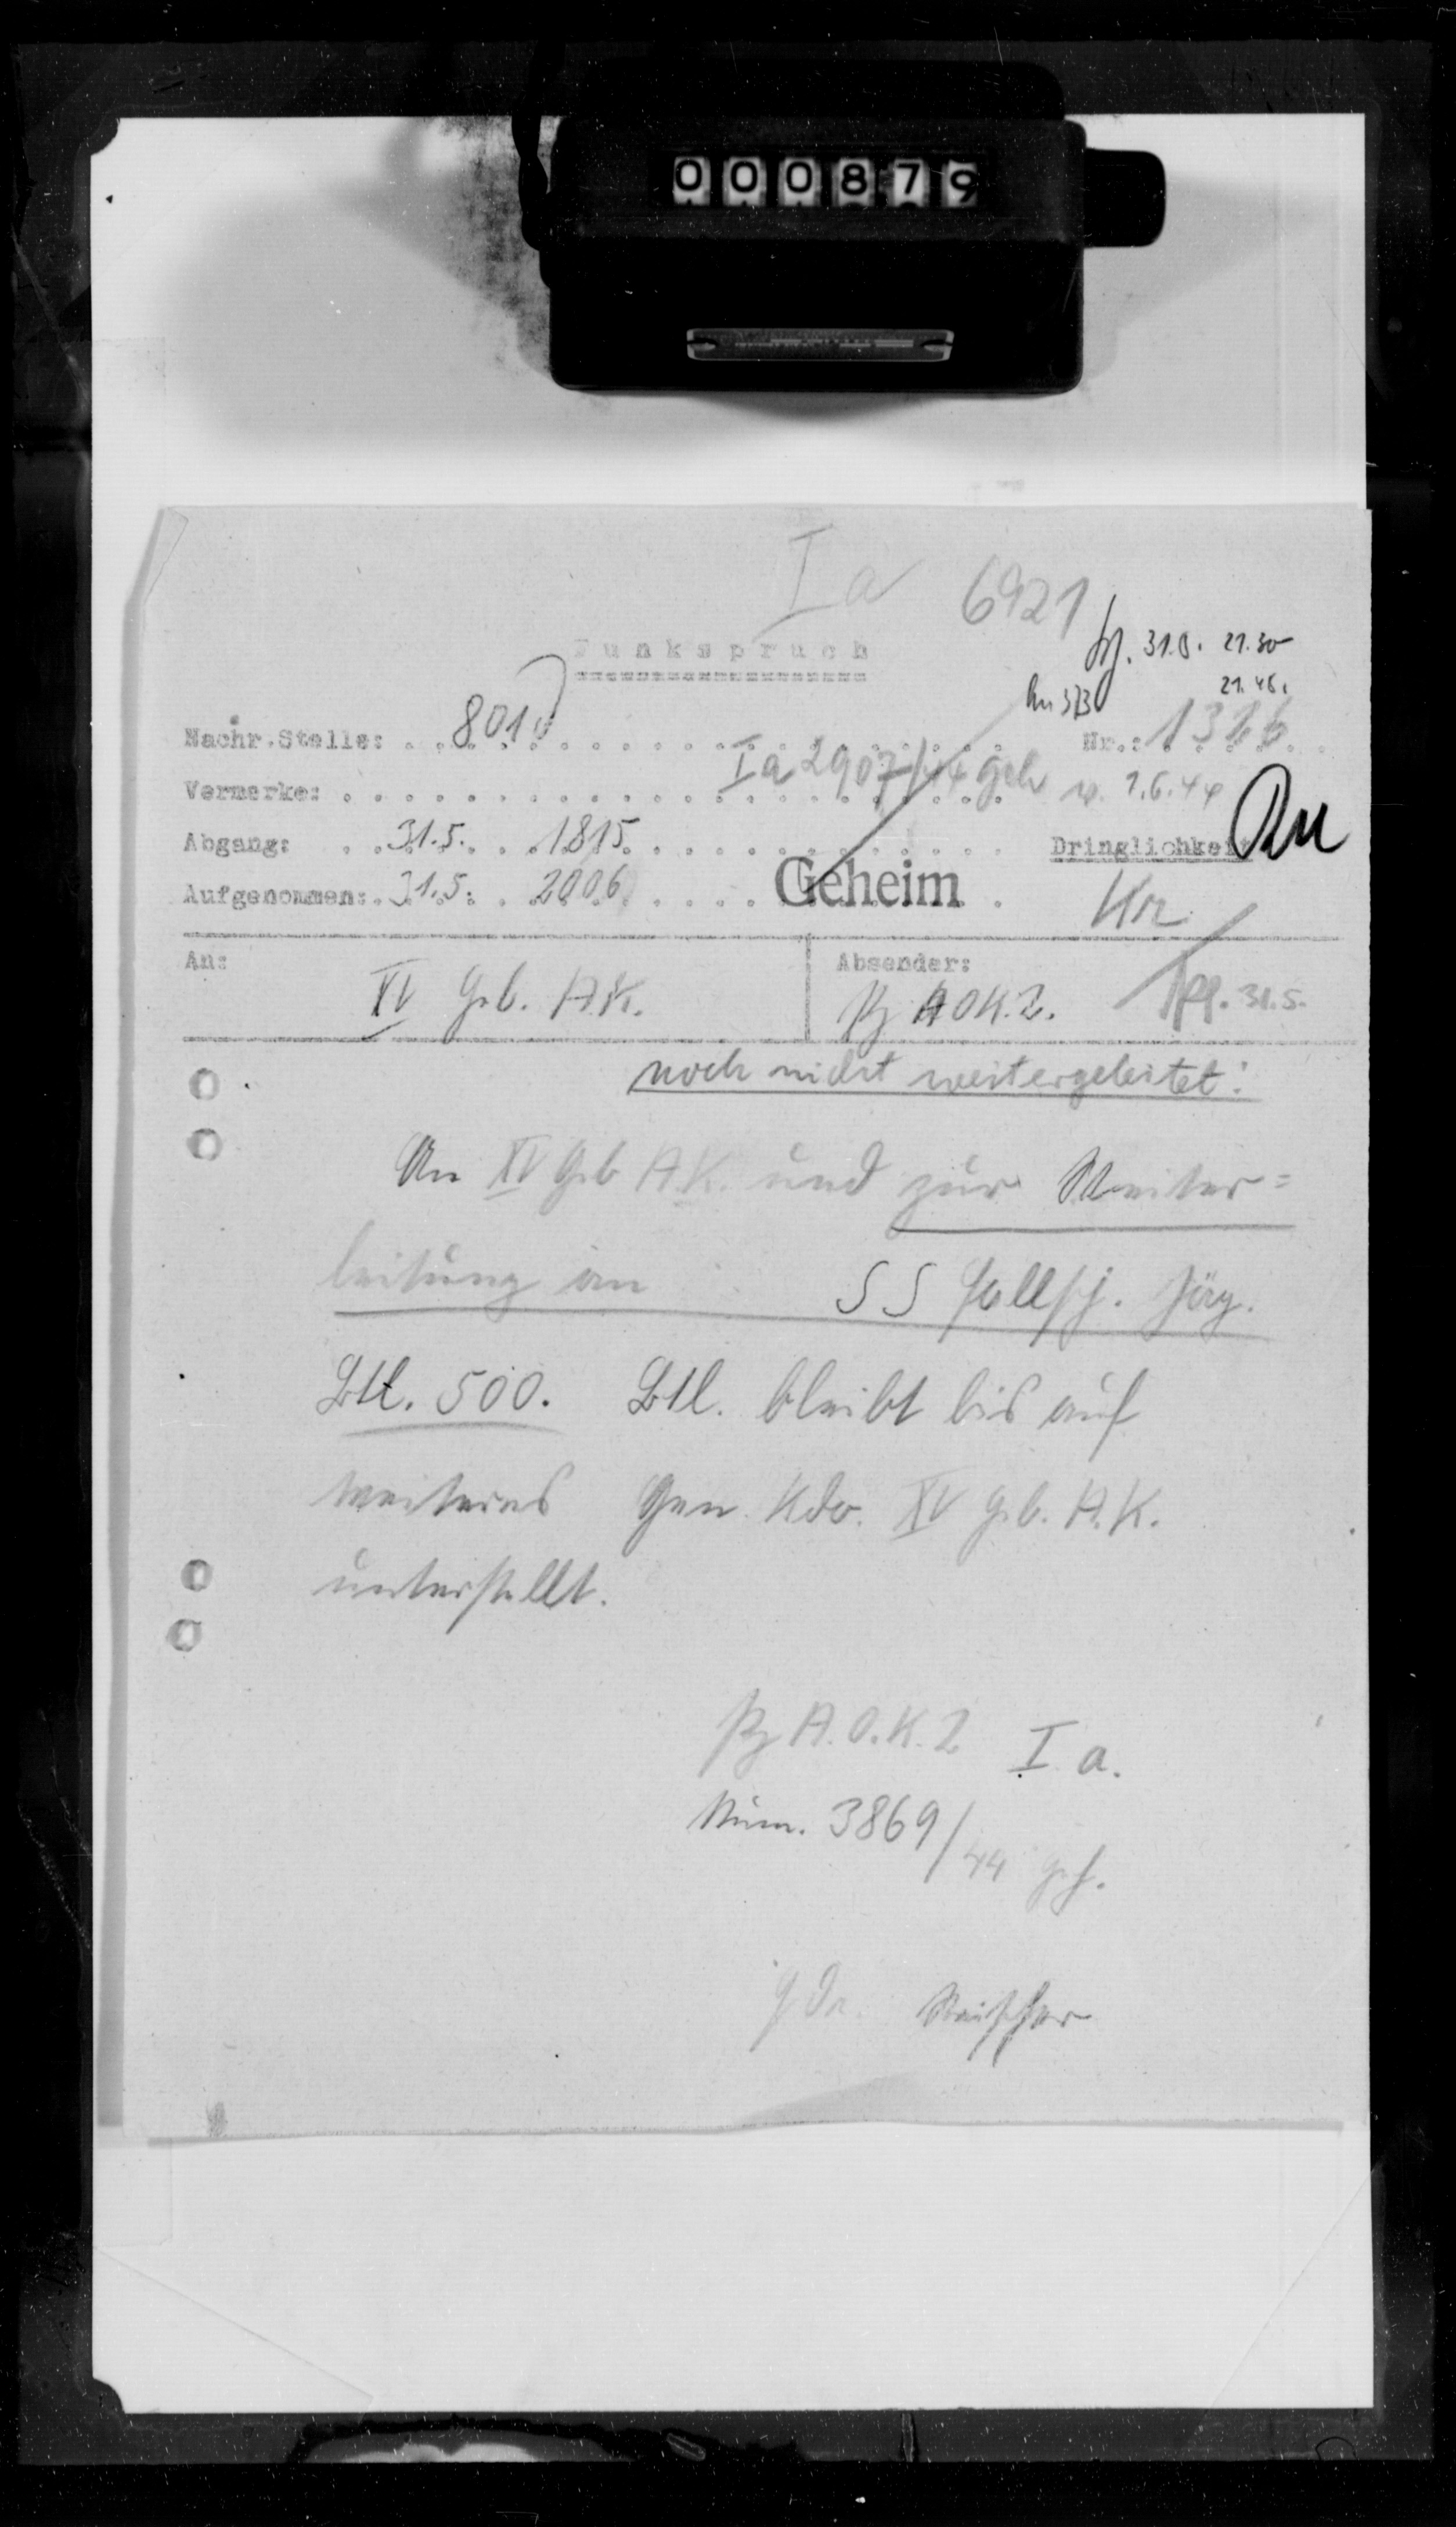 000879
Ia 6921
Funkspruch
31.5. 21.30
21.45.
Nachr.Stelle: 801 Nr.: 1316
Vermerke: Ia 2907/44 geh 1.6.44
Abgang: 31.5. 1815 Dringlichkeit
Aufgenommen: 31.5. 2006 Geheim
Kr
An: Absender:
XV Geb. A.K. Pz AOK. 2. 31.5.
noch nicht weitergeleitet:
An XV Geb A.K. und zur Weiter=
leitung an SS Fallsch. Jäg.
Btl. 500. Btl. bleibt bis auf
weiteres Gen. Kdo. XV Geb. A.K.
unterstellt.
Pz A.O.K. 2 Ia.
Num. 3869/44 geh.
gez.